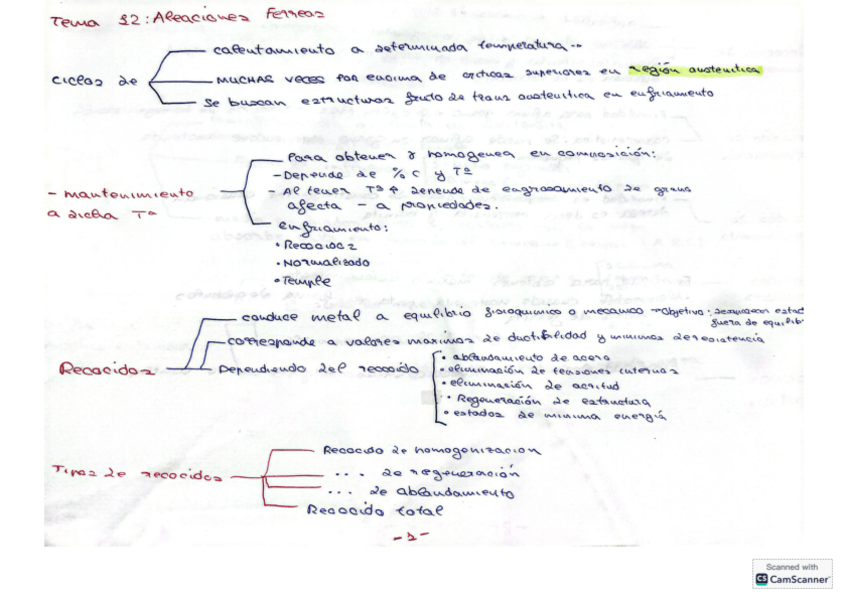 Tema 12: Aleaciones Ferreas
calentamiento a determinada temperatura
ciclos de
MUCHAS VECES por encima de criticas superiores en región austenitica
Se buscan estructuras fruto de trans austenitica en enfriamiento
Para obtener γ homogenea en composición:
- Depende de % C y Tª
- mantenimiento
a dicha Tª
- Al tener Tª ↑ de engrosamiento de grano
afecta - a propiedades.
enfriamiento:
• Recocidoz
• Normalizado
• Temple
conduce metal a equilibrio fisioquimico o mecanico → Objetivo: estad
fuera de equilib
corresponde a valores maximos de ductibilidad y minimos de resistencia
Recocidos
Dependiendo del recocido
• ablandamiento de acero
• eliminación de tensiones internas
• eliminación de acritud
• Regeneración de estructura
• estados de minima energía
Recocido de homogenizacion
Tipos de recocidos
... de regeneración
... de ablandamiento
Recocido total
-1-
Scanned with
CS CamScanner